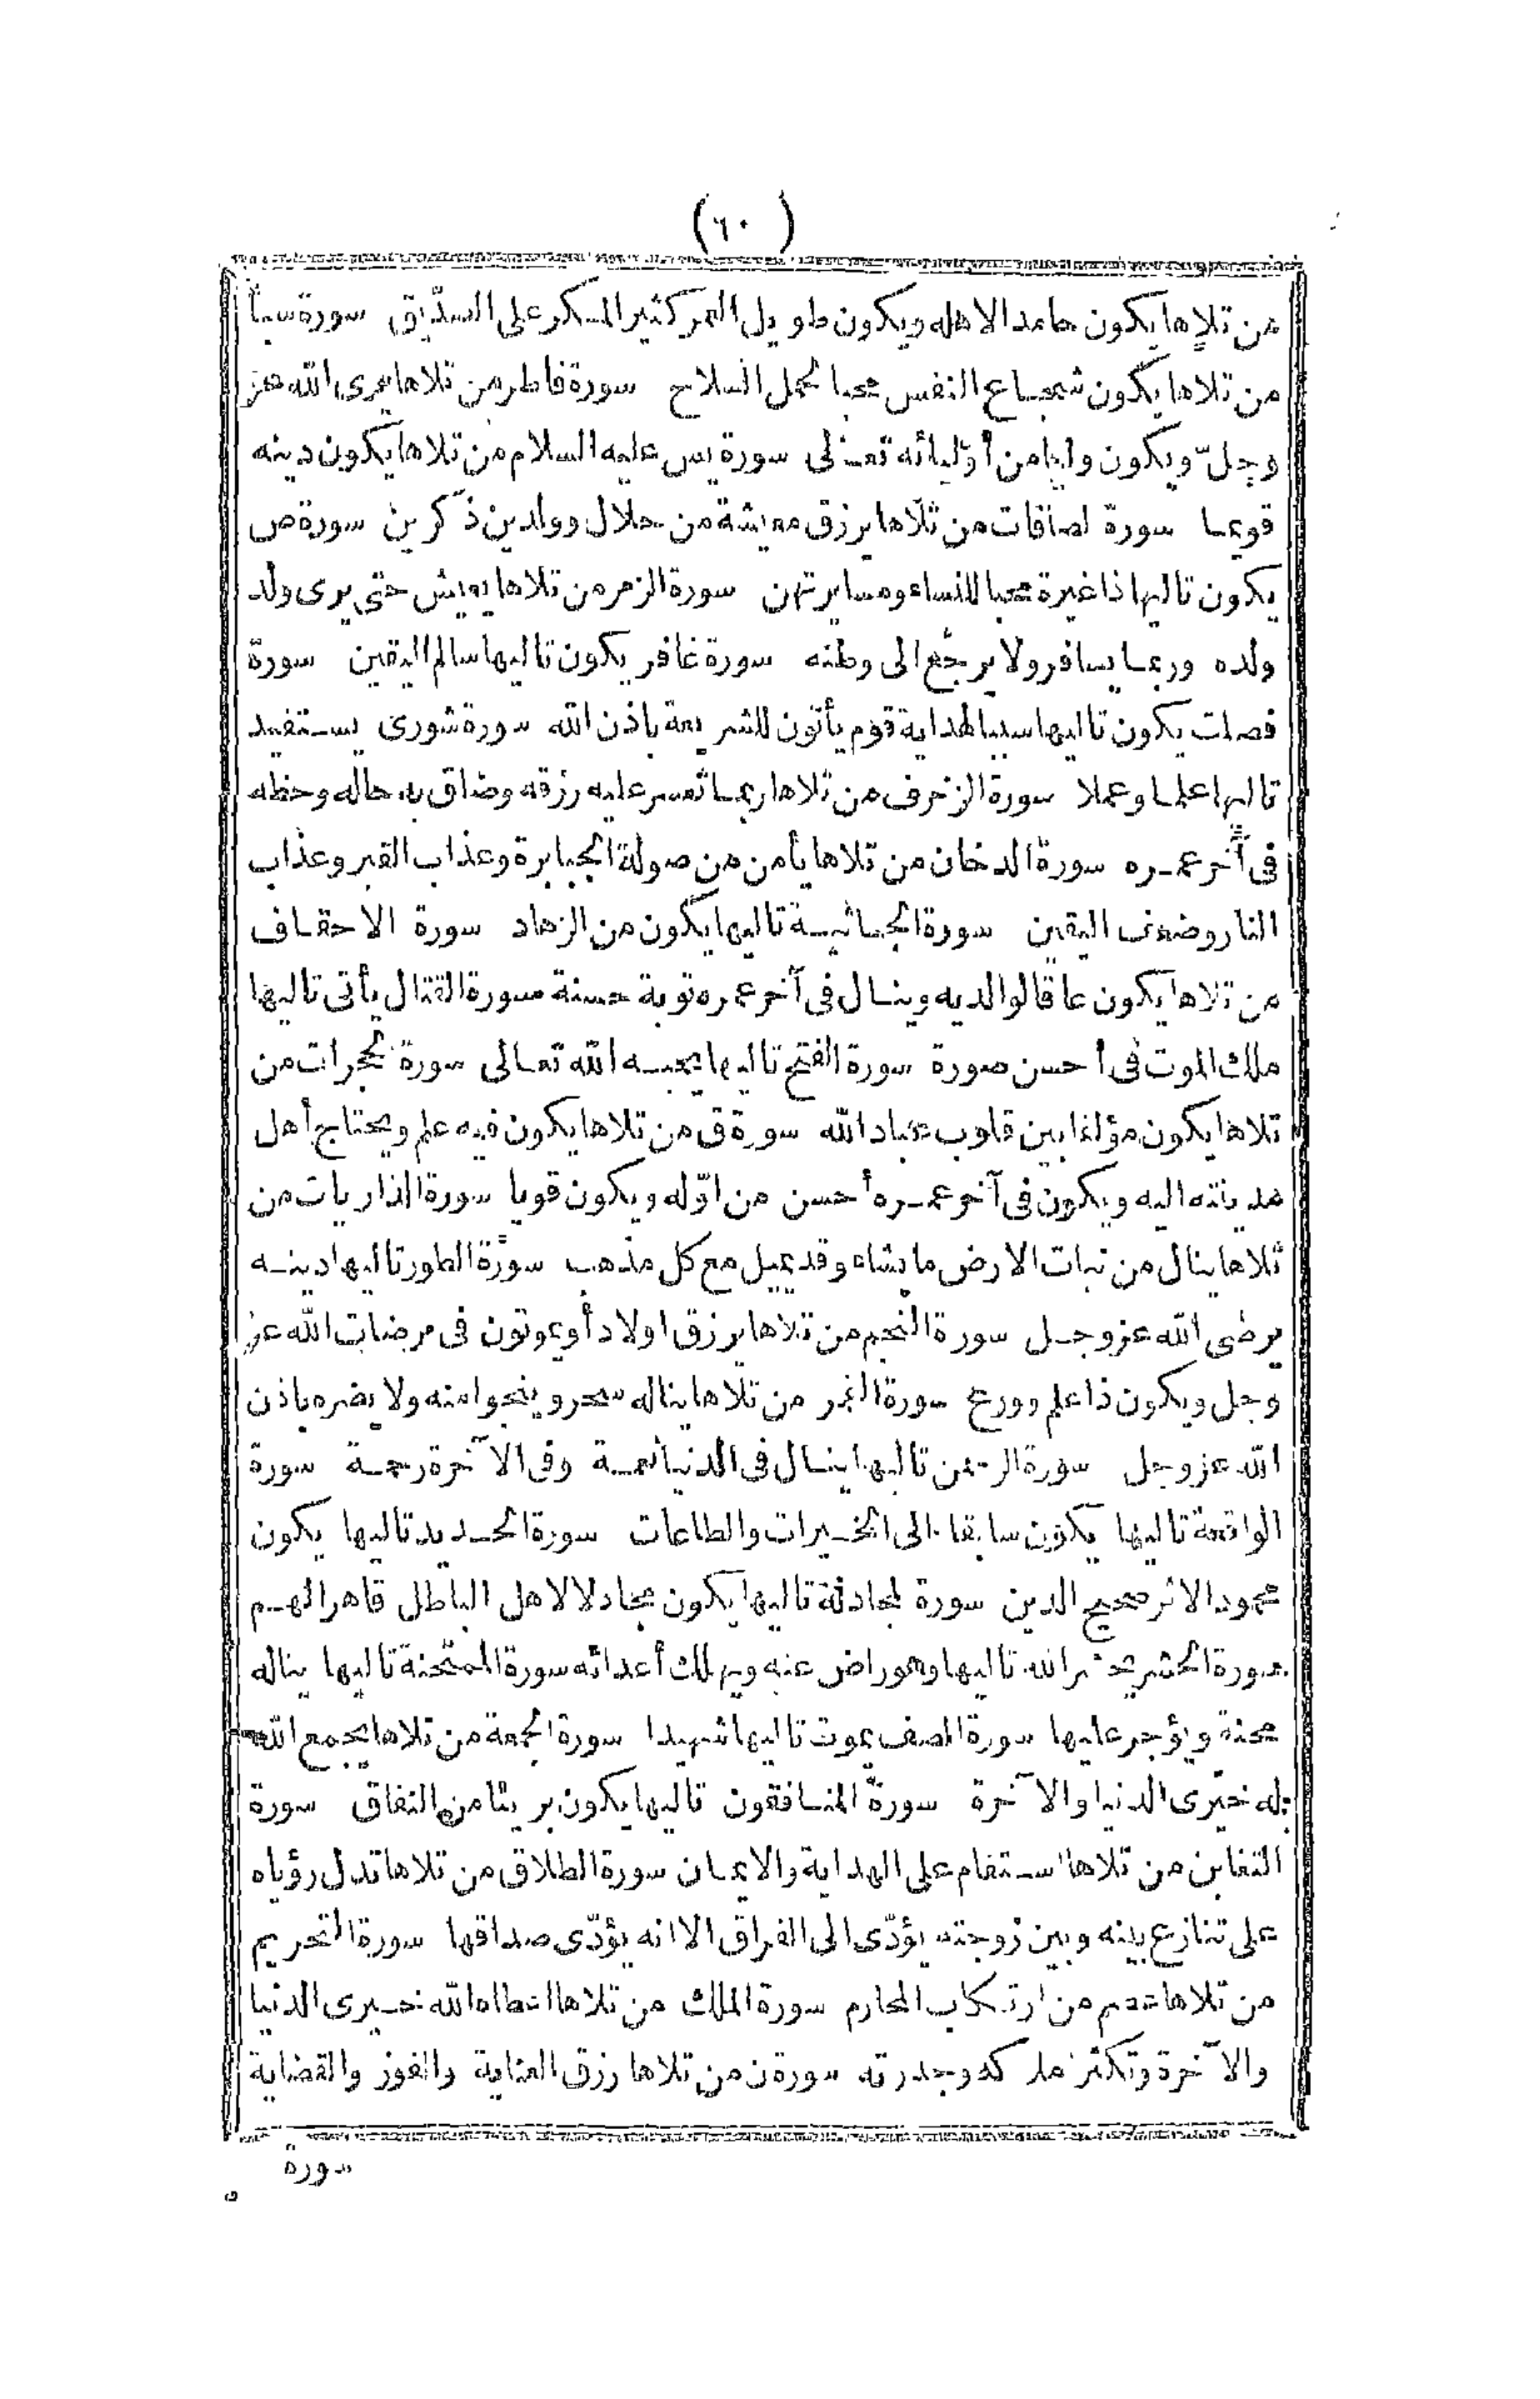 (٦٠)
من تلاها يكون حامدا لاهله ويكون طويل العمر كثير المكر على الصدّيق سورة سبأ
من تلاها يكون شجاع النفس محبا لحمل السلاح سورة فاطر من تلاها يرى الله عز
وجلّ ويكون وليا من أوليائه تعالى سورة يس عليه السلام من تلاها يكون دينه
قويما سورة الصافات من تلاها يرزق معيشة من حلال وولدين ذكرين سورة ص
يكون تاليها ذا غيرة محبا للنساء ومسايرتهن سورة الزمر من تلاها يعيش حتى يرى ولد
ولده وربما يسافر ولا يرجع الى وطنه سورة غافر يكون تاليها سالم اليقين سورة
فصلت يكون تاليها سببا لهداية قوم يأتون للشريعة باذن الله سورة شورى يستفيد
تاليها علما وعملا سورة الزخرف من تلاها ربما تعسر عليه رزقه وضاق به حاله وحظه
فى آخر عمره سورة الدخان من تلاها يأمن من صولة الجبابرة وعذاب القبر وعذاب
النار وضعف اليقين سورة الجاثية تاليها يكون من الزهاد سورة الاحقاف
من تلاها يكون عاقا لوالديه وينال فى آخر عمره توبة حسنة سورة القتال يأتى تاليها
ملك الموت فى أحسن صورة سورة الفتح تاليها يحبه الله تعالى سورة الحجرات من
تلاها يكون مؤلفا بين قلوب عباد الله سورة ق من تلاها يكون فيه علم ويحتاج أهل
مدينته اليه ويكون فى آخر عمره أحسن من اوّله ويكون قويا سورة الذاريات من
تلاها ينال من نبات الارض ما يشاء وقد يميل مع كل مذهب سورة الطور تاليها دينه
يرضى الله عز وجل سورة النجم من تلاها يرزق اولادا ويموتون فى مرضات الله عز
وجل ويكون ذا علم وورع سورة القمر من تلاها يناله سحر وينجو امنه ولا يضره باذن
الله عز وجل سورة الرحمن تاليها ينال فى الدنيا نعمة وفى الآخرة رحمة سورة
الواقعة تاليها يكون سابقا الى الخيرات والطاعات سورة الحديد تاليها يكون
محمود الاثر صحيح الدين سورة المجادلة تاليها يكون مجادلا لاهل الباطل قاهرا لهم
سورة الحشر يحشر الله تاليها وهو راض عنه ويهلك أعدائه سورة الممتحنة تاليها يناله
محنة ويؤجر عليها سورة الصف يموت تاليها شهيدا سورة الجمعة من تلاها يجمع الله
له خيرى الدنيا والآخرة سورة المنافقون تاليها يكون بريئا من النفاق سورة
التغابن من تلاها استقام على الهداية والايمان سورة الطلاق من تلاها تدل رؤياه
على تنازع بينه وبين زوجته يؤدّى الى الفراق الا انه يؤدّى صداقها سورة التحريم
من تلاها عصم من ارتكاب المحارم سورة الملك من تلاها اعطاه الله خيرى الدنيا
والآخرة وتكثر سورة ن من تلاها رزق العناية والفوز والقضاية
سورة